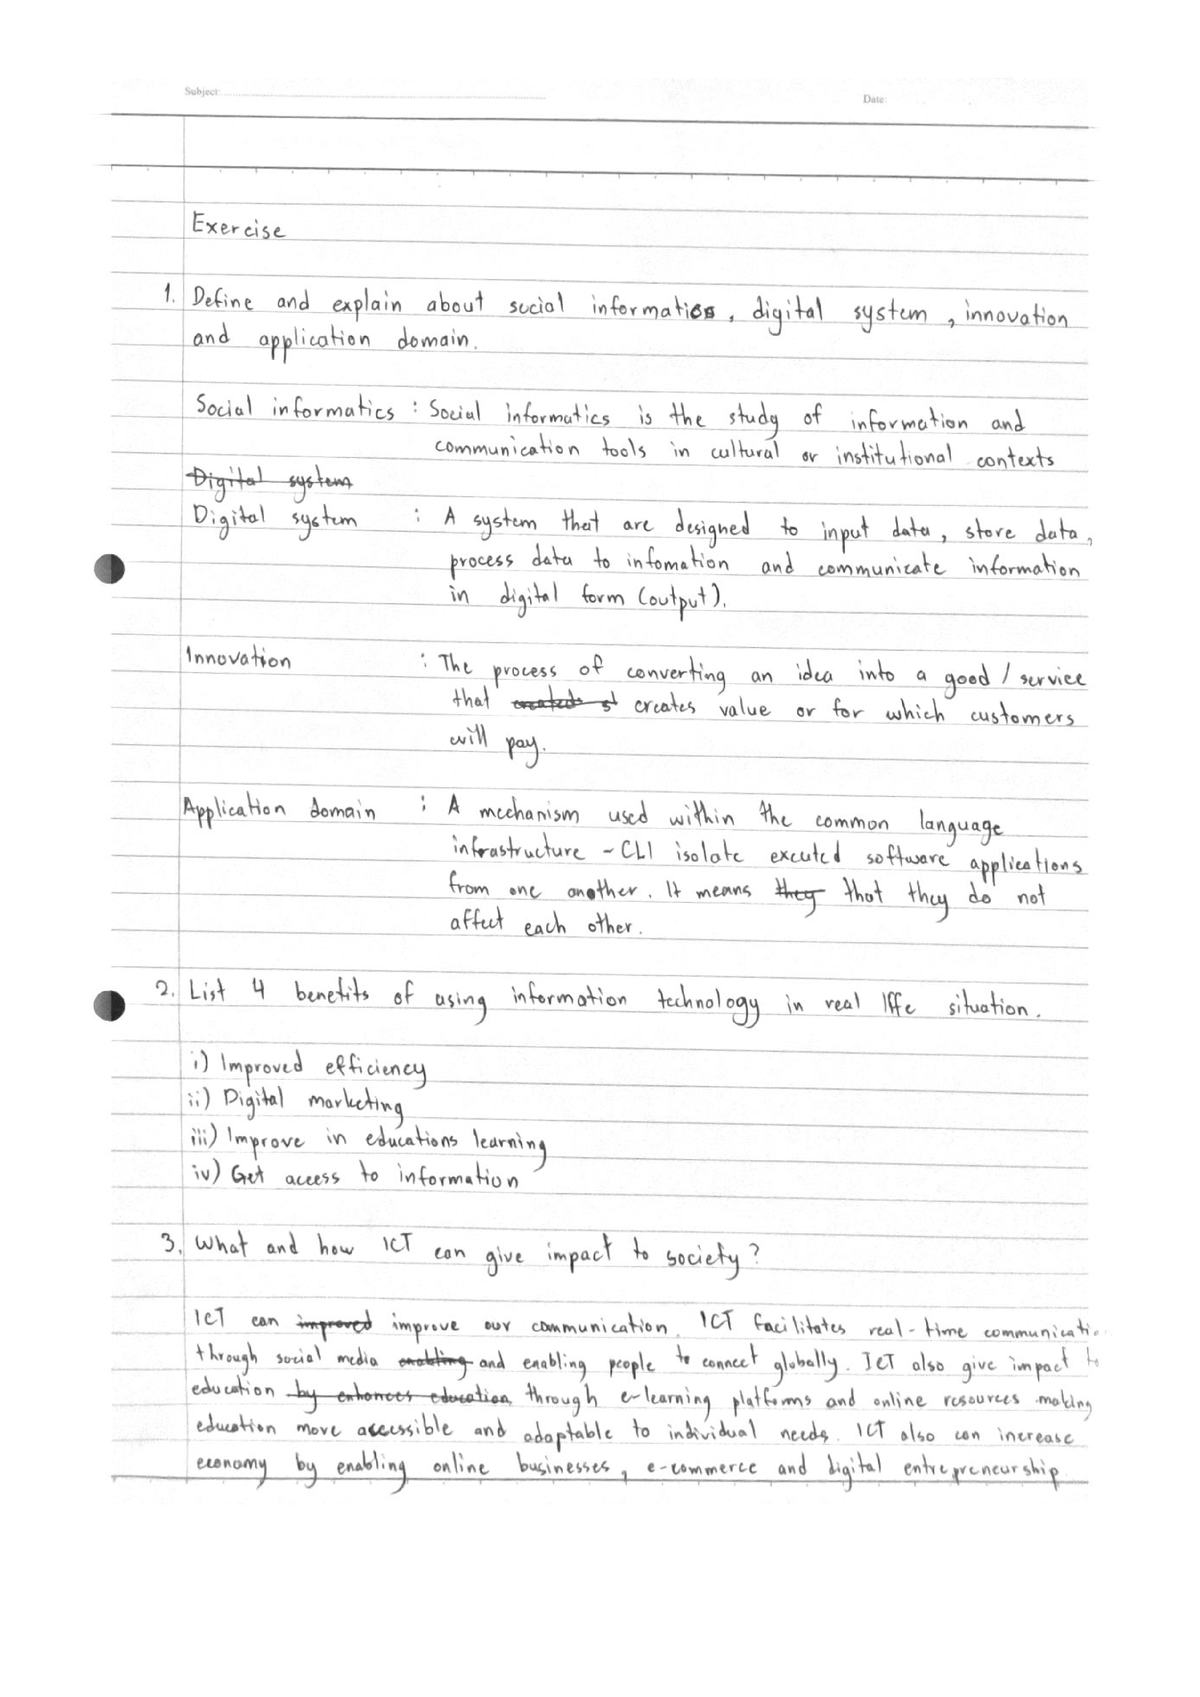 Subject:
Date:
Exercise
1. Define and explain about social informatics, digital system, innovation
and application domain.
Social informatics : Social informatics is the study of information and
communication tools in cultural or institutional contexts
Digital system
Digital system : A system that are designed to input data, store data,
process data to infomation and communicate information
in digital form (output).
Innovation : The process of converting an idea into a good / service
that creates value or for which customers
will pay.
Application domain : A mechanism used within the common language
infrastructure - CLI isolate excuted software applications
from one another. It means they that they do not
affect each other.
2. List 4 benefits of using information technology in real life situation.
i) Improved efficiency
ii) Digital marketing
iii) Improve in educations learning
iv) Get access to information
3. What and how ICT can give impact to society?
ICT can improved improve our communication. ICT facilitates real-time communicatio
through social media enabling and enabling people to connect globally. ICT also give impact to
education by enhances education, through e-learning platforms and online resources making
education more accessible and adaptable to individual needs. ICT also can increase
economy by enabling online businesses, e-commerce and digital entrepreneurship.